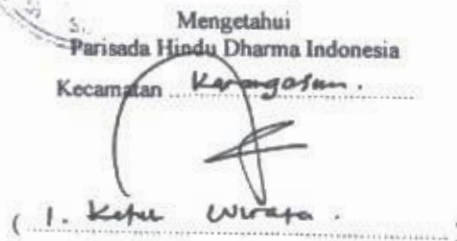 Mengetahui
Parisada Hindu Dharma Indonesia
Kecamatan Karangasem.
( I. Ketut Wirata .